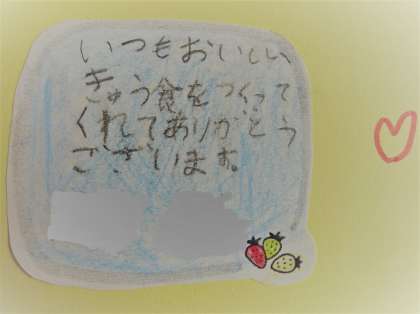 いつもおいしい
きゅう食をつくって
くれてありがとう
ございます。